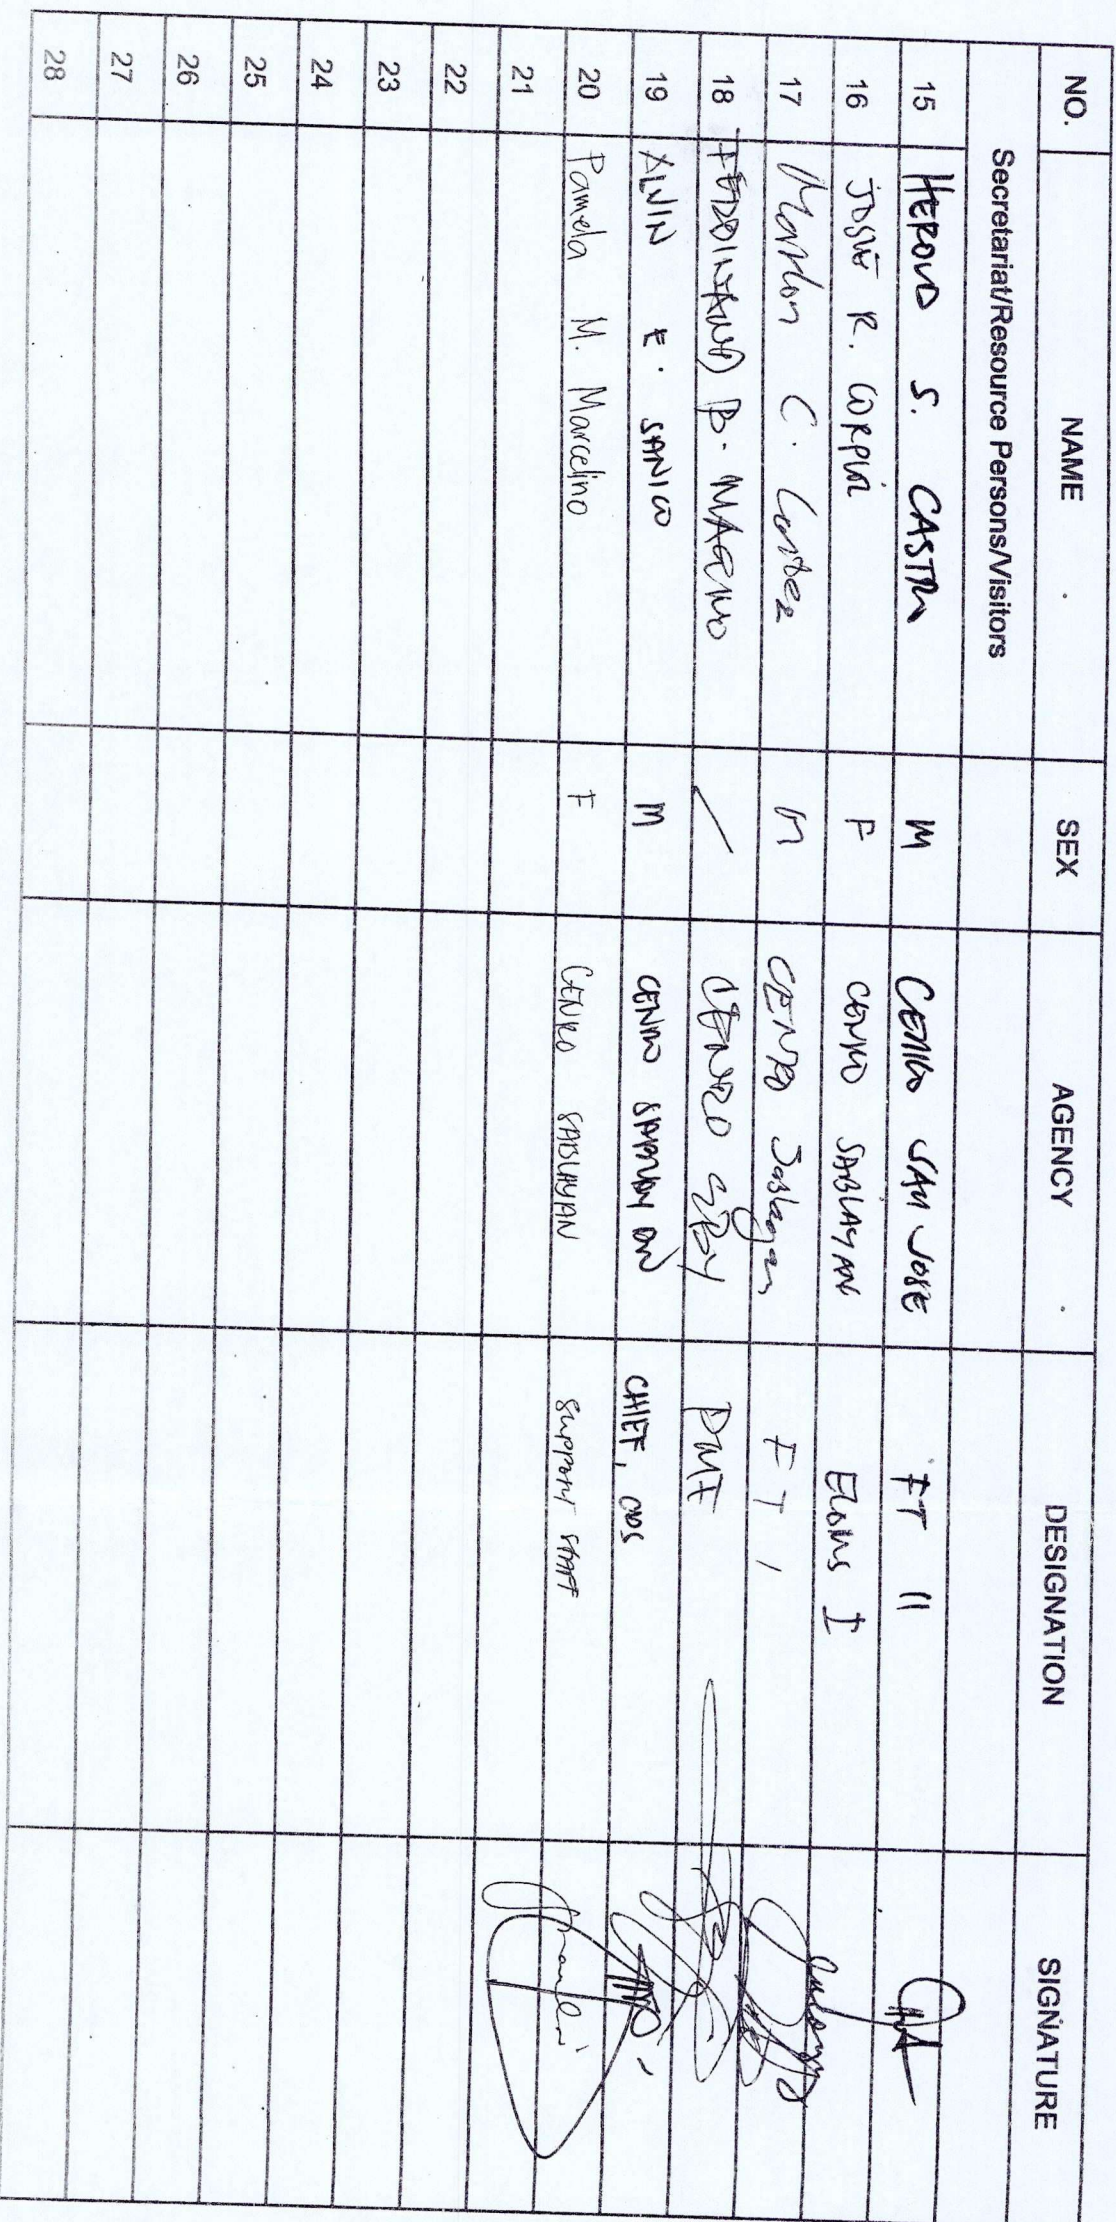 NO. NAME SEX AGENCY DESIGNATION SIGNATURE
Secretariat/Resource Persons/Visitors
15 HEROVD S. CASTRO M CENRO SAN JOSE FT II
16 JOSIE R. CORPUZ F CENRO SABLAYAN I
17 Marlon C. M CENRO Sablayan FT 1
18 FERDINAND B. MAGENO CENRO SBY DMF
19 ALVIN E. SANICO M CENRO SABLAYAN CHIEF, CDS
20 Pamela M. Marcelino F CENRO SABLAYAN SUPPORT STAFF
21
22
23
24
25
26
27
28